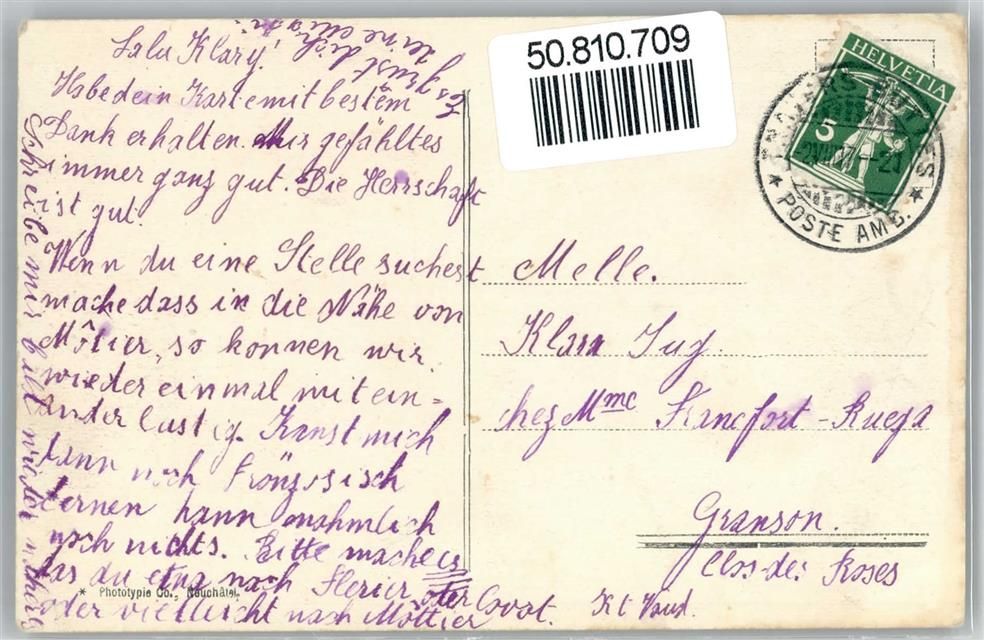 Salu Klary!
Habe dein Karte mit bestem
Dank erhalten. Mir gefählt es
immer ganz gut. Die Herrschaft
ist gut.
Wenn du eine Stelle suchest
mache dass in die Nähe von
Môtier, so konnen wir
wieder einmal mitein=
ander lustig. Kanst mich
dann noch Französisch
lernen kann nahmlich
noch nichts. Bitte mache es
das du etwa nach Flerier oter Covat.
oder vielleicht nach Môttier
Schreibe mir balt wider
Es grüst dich
deine
50.810.709
HELVETIA
5
POSTE AMB.
Melle.
Klara Jug
chez Mme Francfort-Ruega
Granson.
Clos des Roses
Kt Vaud.
* Phototypie Co., Neuchâtel.